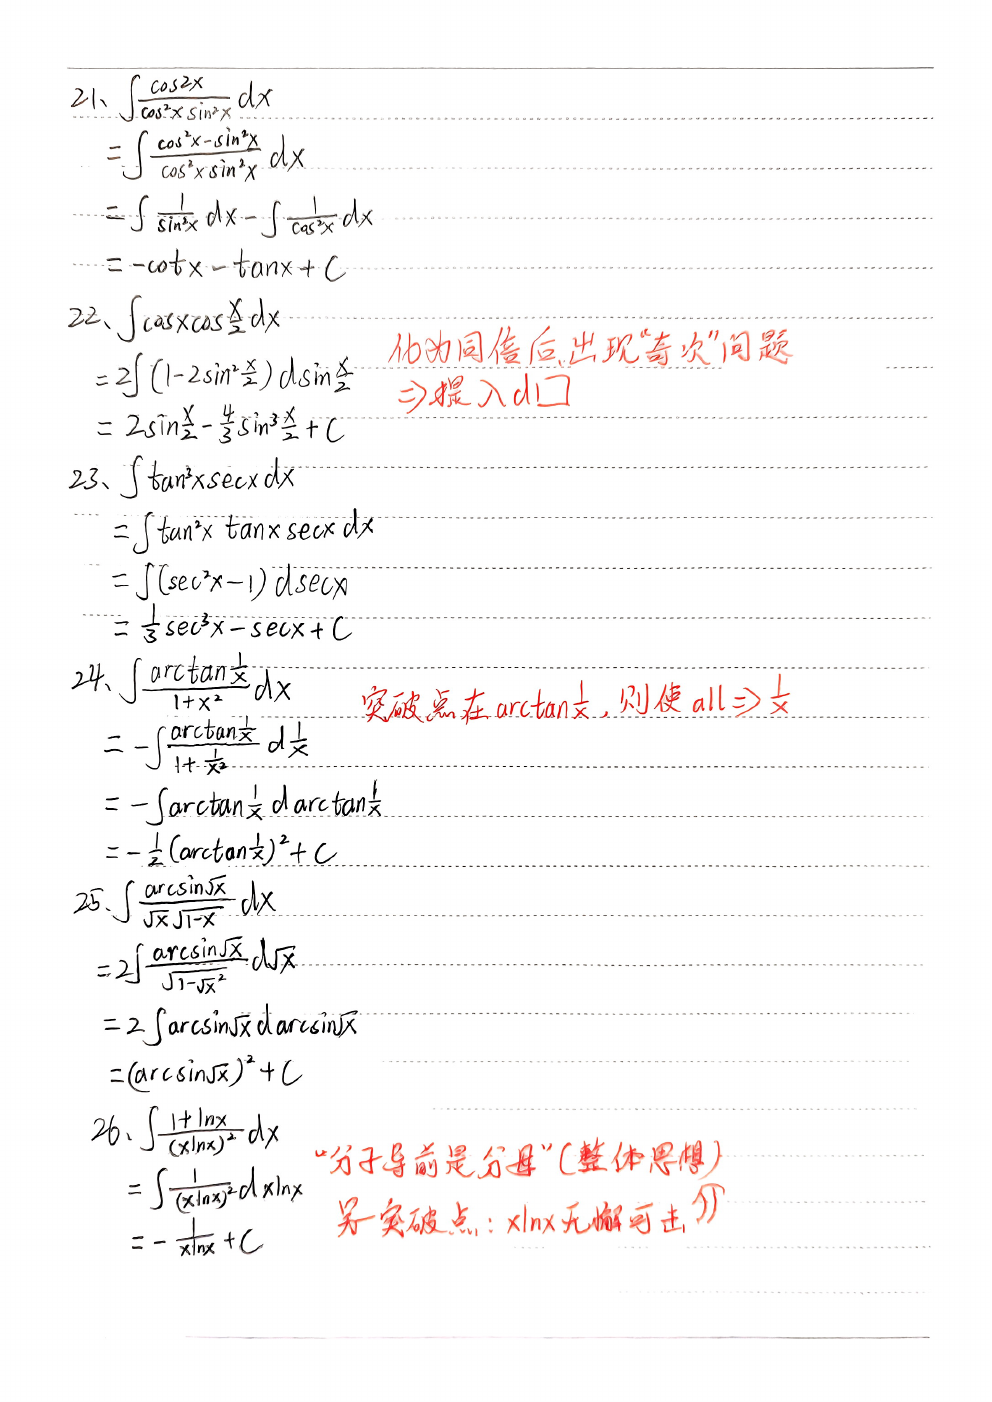 21、∫ cos2x / (cos²x sin²x) dx
= ∫ (cos²x - sin²x) / (cos²x sin²x) dx
= ∫ 1/sin²x dx - ∫ 1/cos²x dx
= -cotx - tanx + C
22、∫ cosx cos x/2 dx
化为同倍后,出现"奇次"问题
= 2∫ (1 - 2sin² x/2) d sin x/2
⇒提入d口
= 2sin x/2 - 4/3 sin³ x/2 + C
23、∫ tan³x secx dx
= ∫ tan²x tanx secx dx
= ∫ (sec²x - 1) dsecx
= 1/3 sec³x - secx + C
24、∫ arctan 1/x / (1+x²) dx
突破点在 arctan 1/x, 则使 all ⇒ 1/x
= -∫ arctan 1/x / (1 + 1/x²) d 1/x
= -∫ arctan 1/x d arctan 1/x
= -1/2 (arctan 1/x)² + C
25、∫ arcsin√x / (√x √1-x) dx
= 2∫ arcsin√x / √(1-√x²) d√x
= 2∫ arcsin√x d arcsin√x
= (arcsin√x)² + C
26、∫ (1+lnx) / (xlnx)² dx
"分子导前是分母"(整体思想)
= ∫ 1/(xlnx)² d xlnx
另一突破点: xlnx无懈可击
= - 1/(xlnx) + C